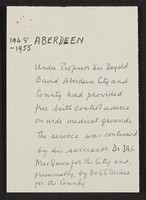 1948 ABERDEEN
-1955
Under Professor Sir Dugald
Baird Aberdeen City and
County had provided
free birth control advice
on wide medical grounds.
The service was continued
by his successor Dr IAG
MacQueen for the City and,
presumably, by Dr GG
for the County